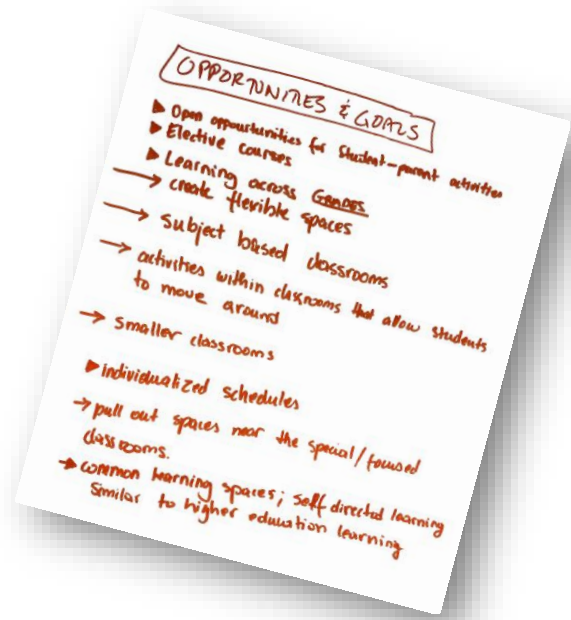 OPPORTUNITIES & GOALS
▶ Open oppourtunities for Student-parent activities
▶ Elective courses
▶ Learning across GRADES
→ create flexible spaces
→ subject based classrooms
→ activities within classrooms that allow students
to move around
→ smaller classrooms
▶ individualized schedules
→ pull out spaces near the special/focused
classrooms.
→ common learning spaces; self directed learning
similar to higher education learning